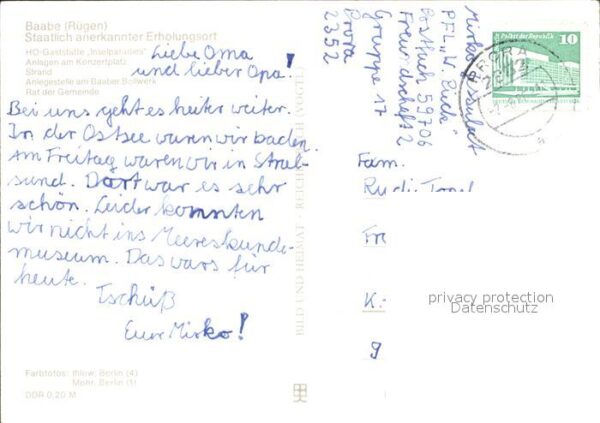 Baabe (Rügen)
Staatlich anerkannter Erholungsort
HO-Gaststätte „Inselparadies"
Anlagen am Konzertplatz
Strand
Anlegestelle am Baaber Bollwerk
Rat der Gemeinde
Liebe Oma
und lieber Opa!
Bei uns geht es heiter weiter.
In der Ostsee waren wir baden.
Am Freitag waren wir in Stral-
sund. Dort war es sehr
schön. Leider konnten
wir nicht ins Meereskunde-
museum. Das wars für
heute.
Tschüß
Euer Mirko!
Farbfotos: Ihlow, Berlin (4)
Mohr, Berlin (1)
DDR 0,20 M
BILD UND HEIMAT REICHENBACH (VOGTL)
Mirko
PFL „W.
Postfach 59706
Freundschaft 2
Gruppe 17
Prora
2352
Palast der Republik
10
PRORA
Fam.
Rudi
Fr
K
9
privacy protection
Datenschutz